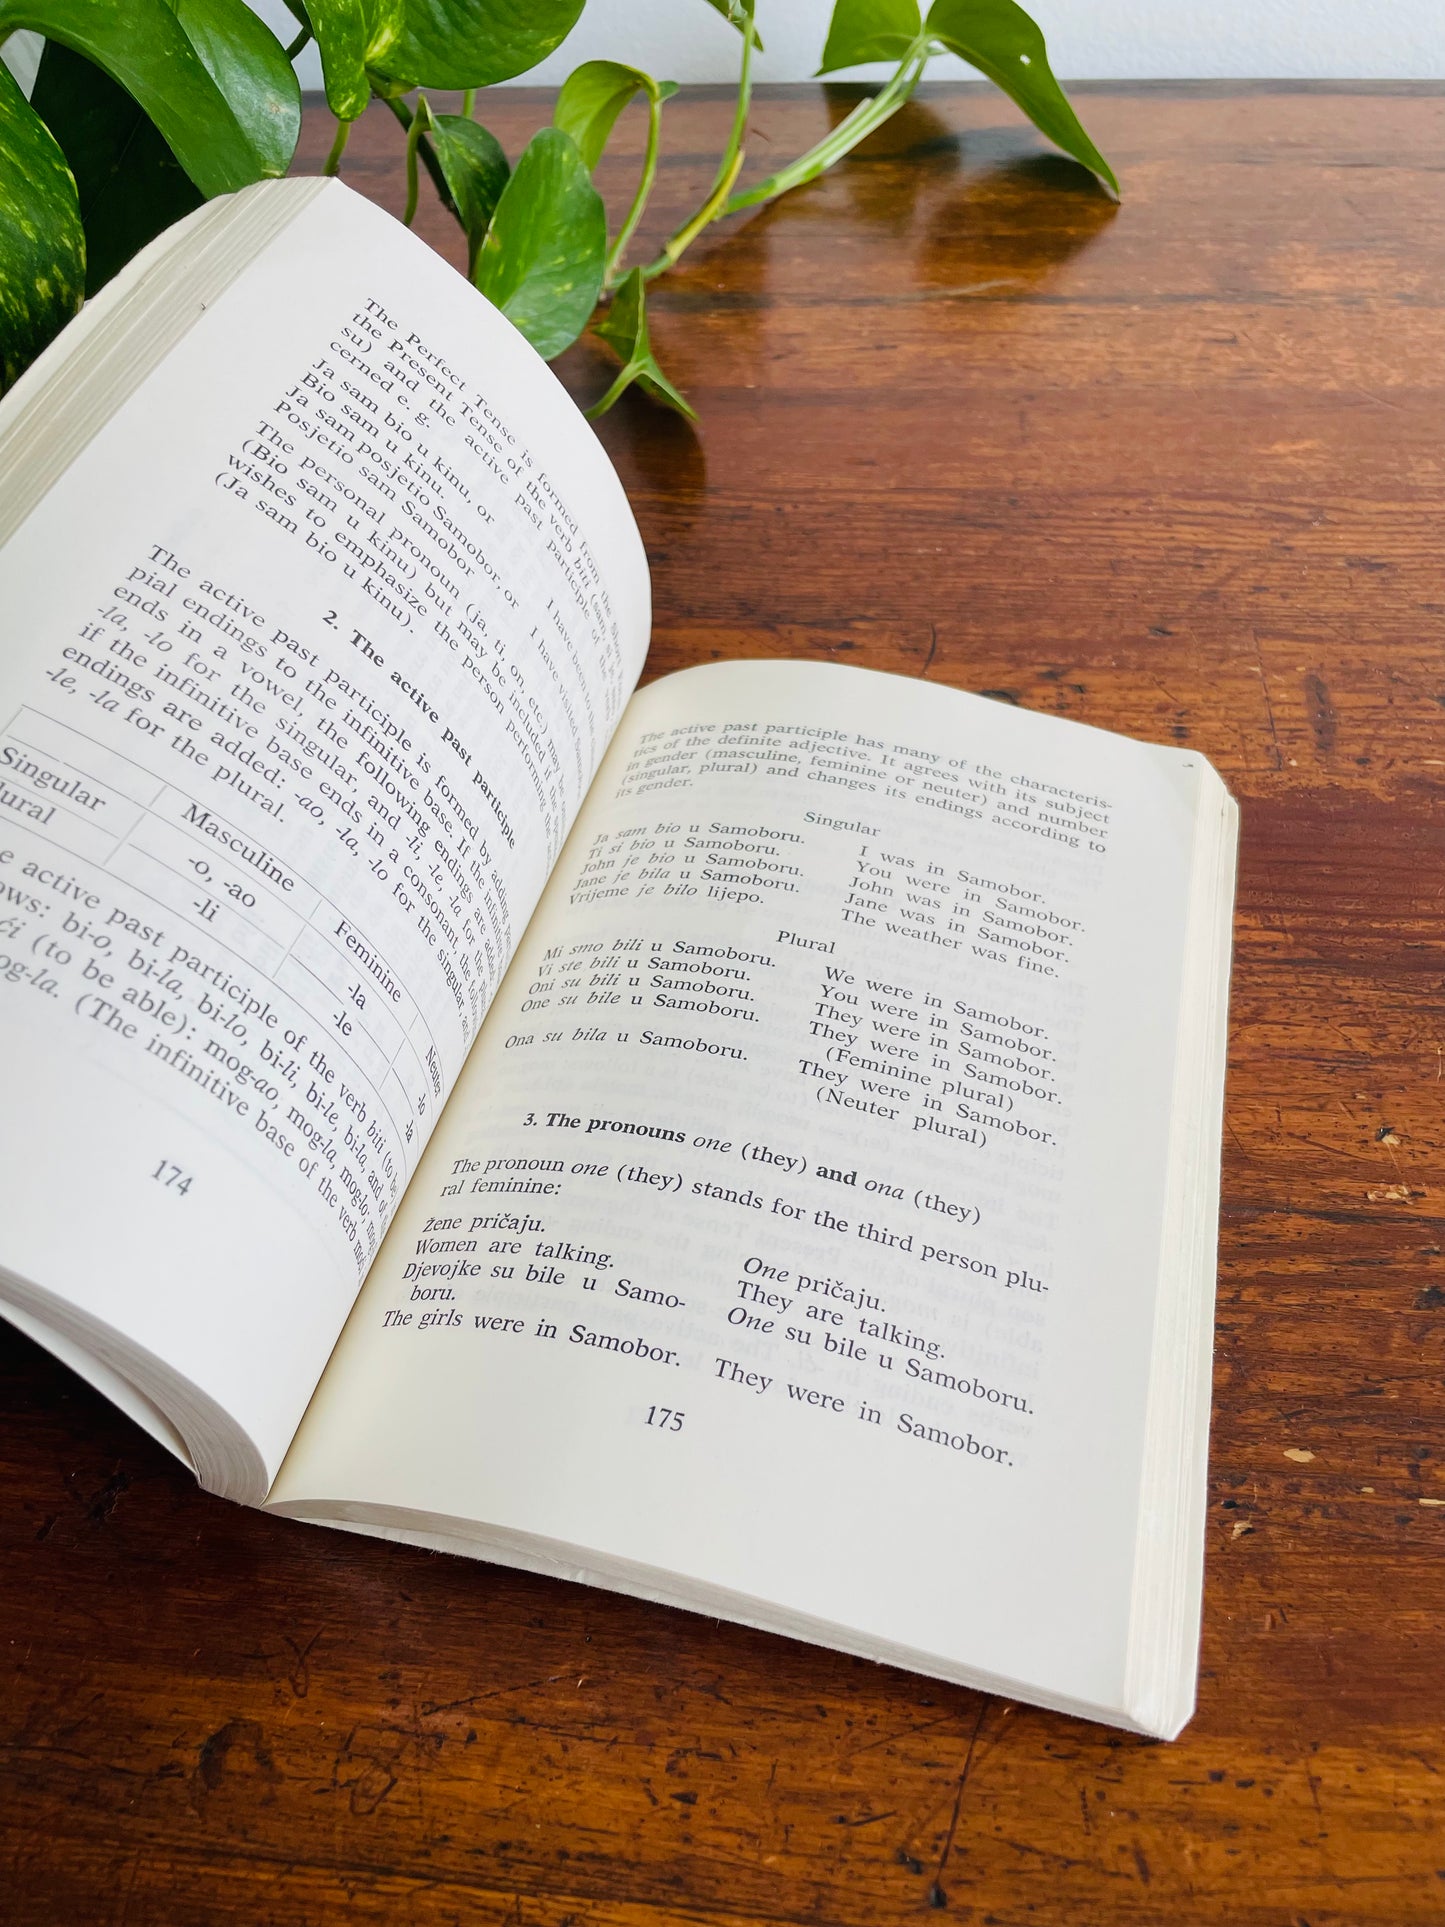 The Perfect Tense is formed from the Short Form
the Present Tense of the verb biti (sam, si, je
su) and the active past participle of the
cerned e. g.
Ja sam bio u kinu, or
Bio sam u kinu. I have been to the
Ja sam posjetio Samobor, or
Posjetio sam Samobor I have visited
The personal pronoun (ja, ti, on, etc.) may be
(Bio sam u kinu) but may be included if the
wishes to emphasize the person performing the
(Ja sam bio u kinu).
2. The active past participle
The active past participle is formed by adding
pial endings to the infinitive base. If the infinitive
ends in a vowel, the following endings are added
-la, -lo for the singular, and -li, -le, -la for the
if the infinitive base ends in a consonant, the
endings are added: -ao, -la, -lo for the singular, and
-le, -la for the plural.
Masculine Feminine Neuter
Singular -o, -ao -la -lo
lural -li -le -la
e active past participle of the verb biti (to be)
ows: bi-o, bi-la, bi-lo, bi-li, bi-le, bi-la, and of
ći (to be able): mog-ao, mog-la, mog-lo,
og-la. (The infinitive base of the verb
174
The active past participle has many of the characteris-
tics of the definite adjective. It agrees with its subject
in gender (masculine, feminine or neuter) and number
(singular, plural) and changes its endings according to
its gender.
Singular
Ja sam bio u Samoboru. I was in Samobor.
Ti si bio u Samoboru. You were in Samobor.
John je bio u Samoboru. John was in Samobor.
Jane je bila u Samoboru. Jane was in Samobor.
Vrijeme je bilo lijepo. The weather was fine.
Plural
Mi smo bili u Samoboru. We were in Samobor.
Vi ste bili u Samoboru. You were in Samobor.
Oni su bili u Samoboru. They were in Samobor.
One su bile u Samoboru. They were in Samobor.
(Feminine plural)
Ona su bila u Samoboru. They were in Samobor.
(Neuter plural)
3. The pronouns one (they) and ona (they)
The pronoun one (they) stands for the third person plu-
ral feminine:
Žene pričaju. One pričaju.
Women are talking. They are talking.
Djevojke su bile u Samo- One su bile u Samoboru.
boru.
The girls were in Samobor. They were in Samobor.
175